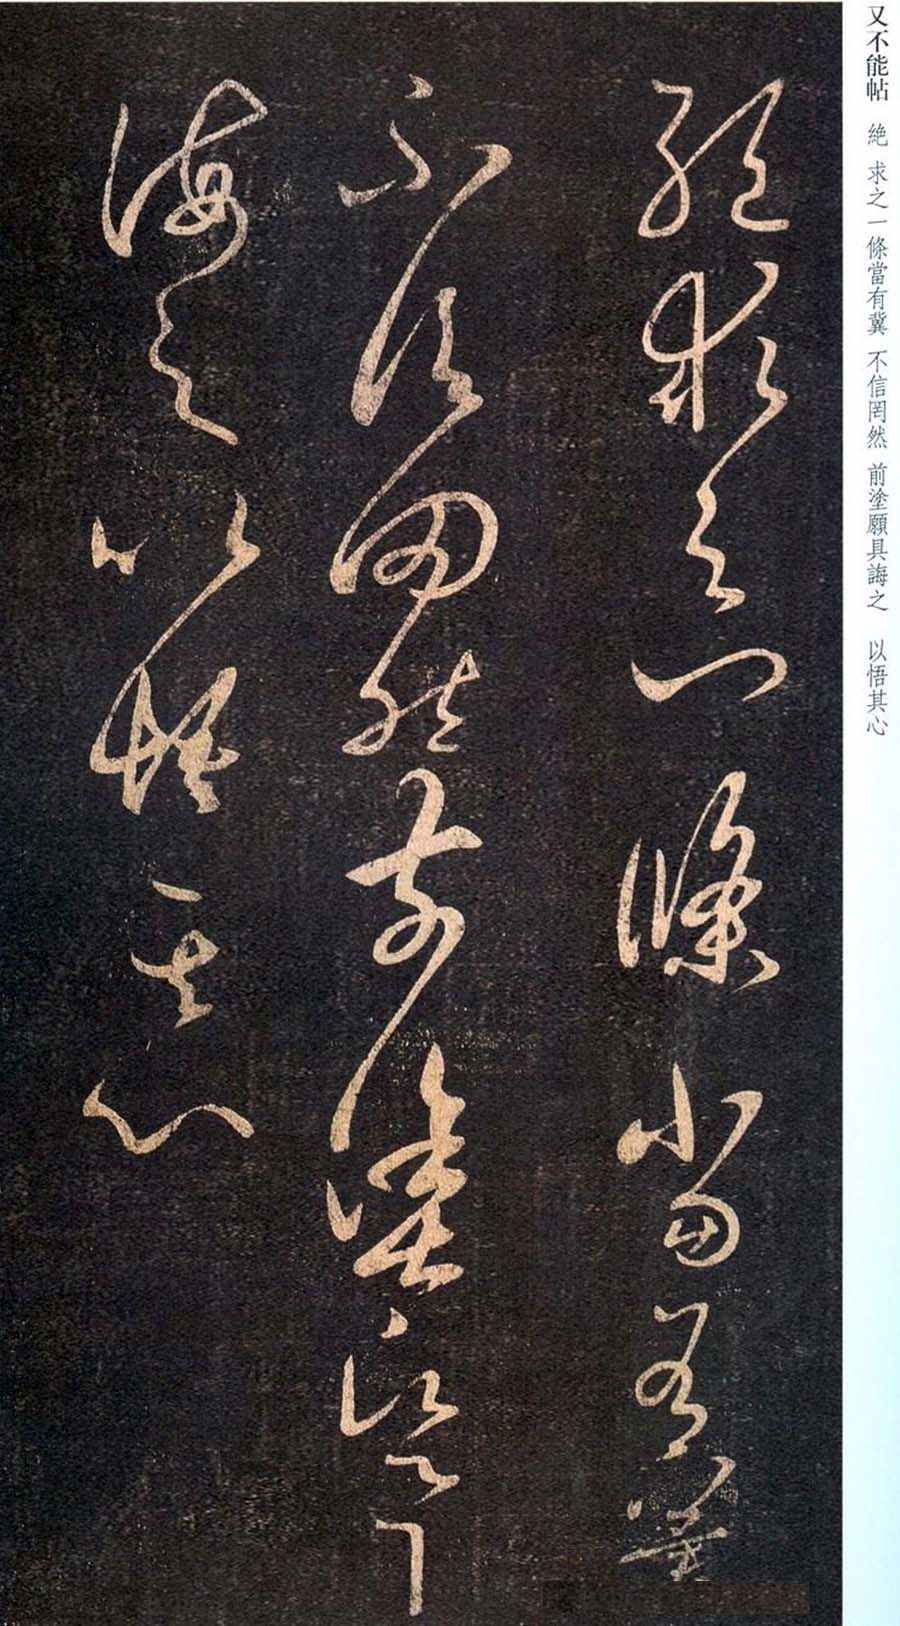 又不能帖 絶 求之一條當有冀 不信罔然 前塗願具誨之 以悟其心
絶求之一條當有冀
不信罔然前塗願具
誨之以悟其心